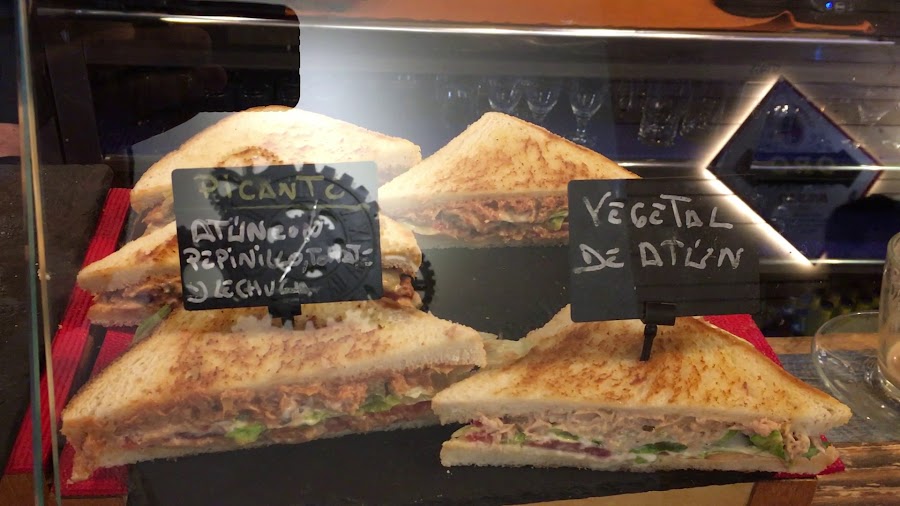 PICANTE
ATÚN CON
PEPINILLO, TOMATE
Y LECHUGA
VEGETAL
DE ATÚN